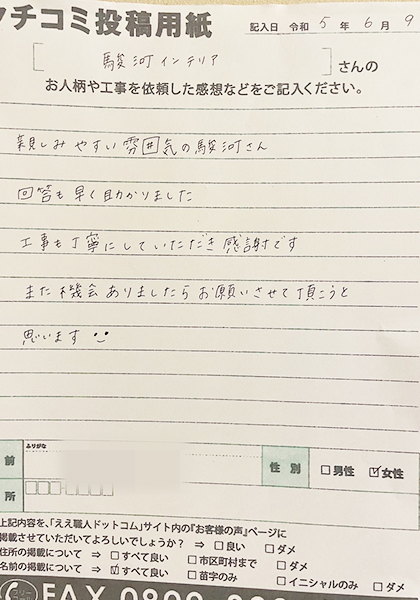 クチコミ投稿用紙
記入日 令和 5 年 6 月 9
[ 駿河インテリア ] さんの
お人柄や工事を依頼した感想などをご記入ください。
親しみやすい雰囲気の駿河さん
回答も早く助かりました
工事も丁寧にしていただき感謝です
また機会ありましたらお願いさせて頂こうと
思います
ふりがな
前
性別 □男性 ☑女性
所
上記内容を、「ええ職人ドットコム」サイト内の『お客様の声』ページに
掲載させていただいてよろしいでしょうか? ⇒ □良い □ダメ
住所の掲載について ⇒ □すべて良い □市区町村まで □ダメ
名前の掲載について ⇒ ☑すべて良い □苗字のみ □イニシャルのみ □ダメ
FAX 0800